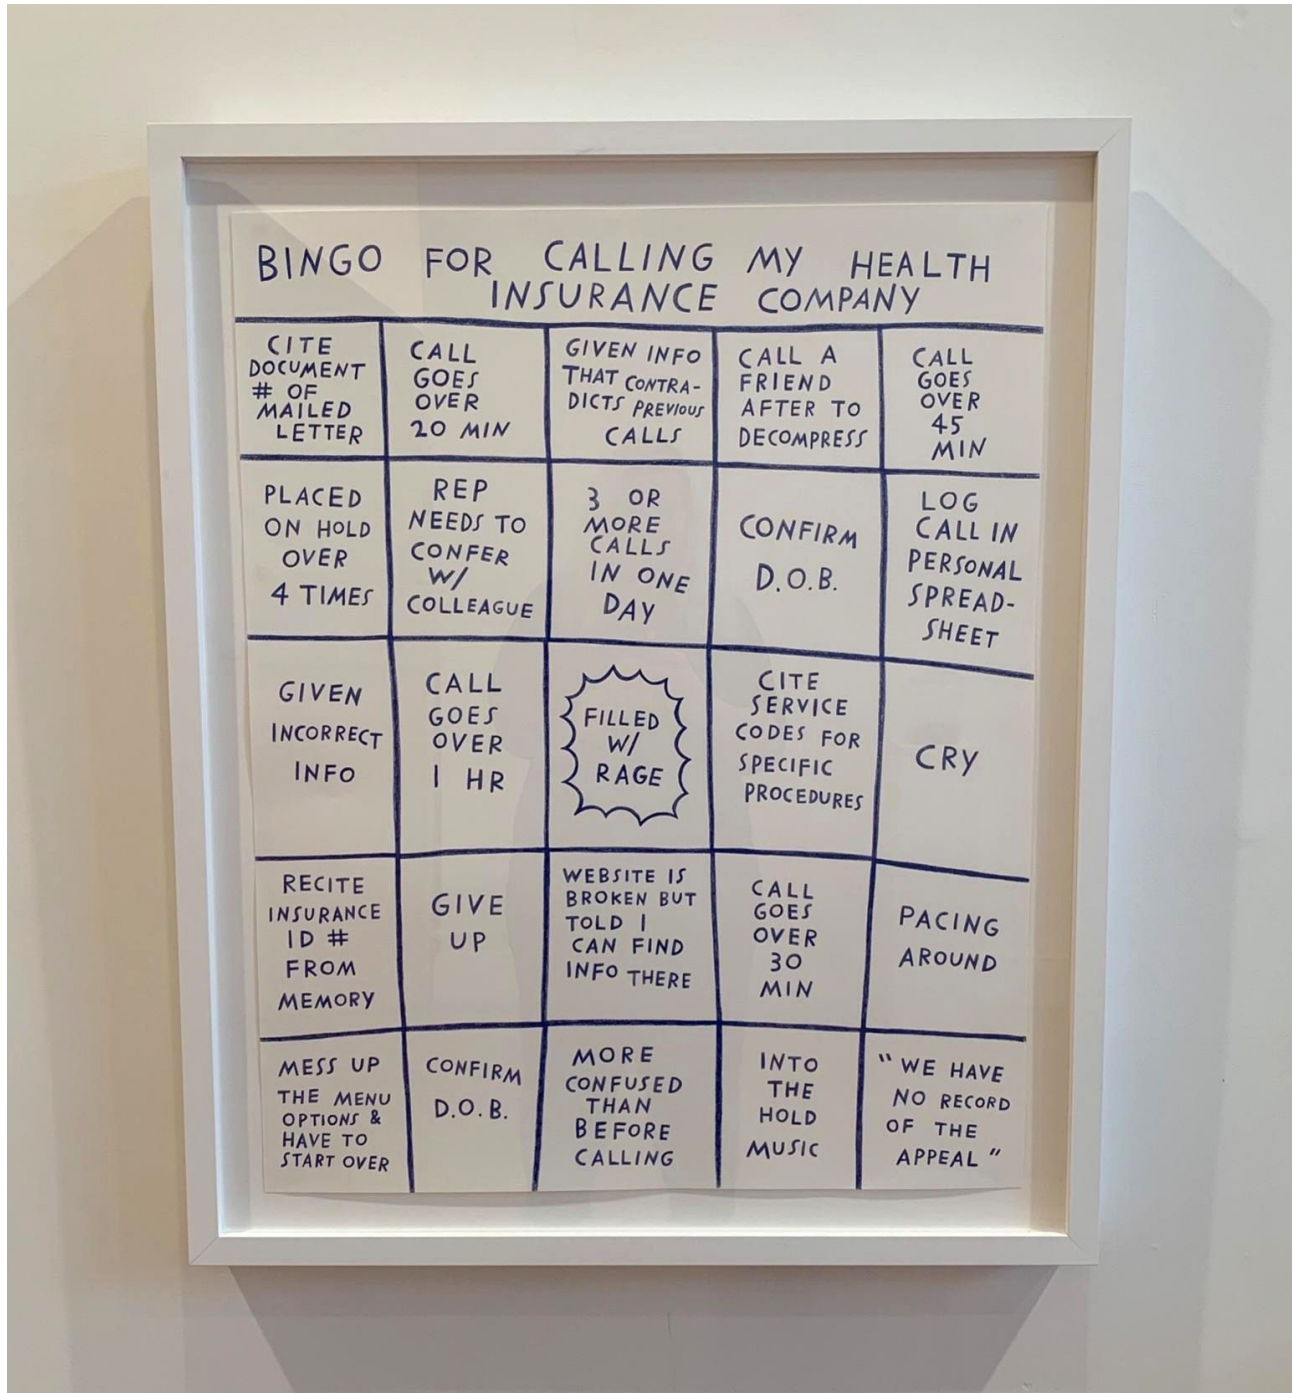 BINGO FOR CALLING MY HEALTH
INSURANCE COMPANY
CITE
DOCUMENT
# OF
MAILED
LETTER
CALL
GOES
OVER
20 MIN
GIVEN INFO
THAT CONTRA-
DICTS PREVIOUS
CALLS
CALL A
FRIEND
AFTER TO
DECOMPRESS
CALL
GOES
OVER
45
MIN
PLACED
ON HOLD
OVER
4 TIMES
REP
NEEDS TO
CONFER
W/
COLLEAGUE
3 OR
MORE
CALLS
IN ONE
DAY
CONFIRM
D.O.B.
LOG
CALL IN
PERSONAL
SPREAD-
SHEET
GIVEN
INCORRECT
INFO
CALL
GOES
OVER
1 HR
FILLED
W/
RAGE
CITE
SERVICE
CODES FOR
SPECIFIC
PROCEDURES
CRY
RECITE
INSURANCE
ID #
FROM
MEMORY
GIVE
UP
WEBSITE IS
BROKEN BUT
TOLD I
CAN FIND
INFO THERE
CALL
GOES
OVER
30
MIN
PACING
AROUND
MESS UP
THE MENU
OPTIONS &
HAVE TO
START OVER
CONFIRM
D.O.B.
MORE
CONFUSED
THAN
BEFORE
CALLING
INTO
THE
HOLD
MUSIC
"WE HAVE
NO RECORD
OF THE
APPEAL"